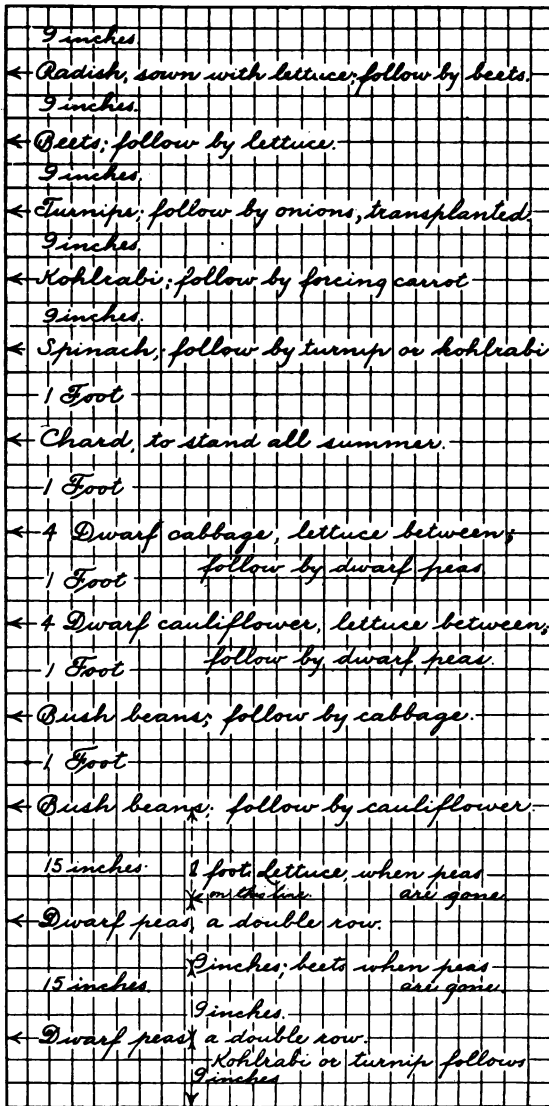 9 inches.
Radish, sown with lettuce; follow by beets.
9 inches.
Beets; follow by lettuce.
9 inches.
Turnips; follow by onions, transplanted.
9 inches.
Kohlrabi; follow by forcing carrot
9 inches.
Spinach; follow by turnip or kohlrabi
1 Foot
Chard, to stand all summer.
1 Foot
4 Dwarf cabbage, lettuce between;
follow by dwarf peas
1 Foot
4 Dwarf cauliflower, lettuce between;
follow by dwarf peas.
1 Foot
Bush beans; follow by cabbage.
1 Foot
Bush beans; follow by cauliflower.
15 inches. 1 foot. Lettuce, when peas
on this line. are gone
Dwarf peas, a double row.
9 inches; beets when peas
15 inches. are gone.
9 inches.
Dwarf peas, a double row.
Kohlrabi or turnip follows
9 inches